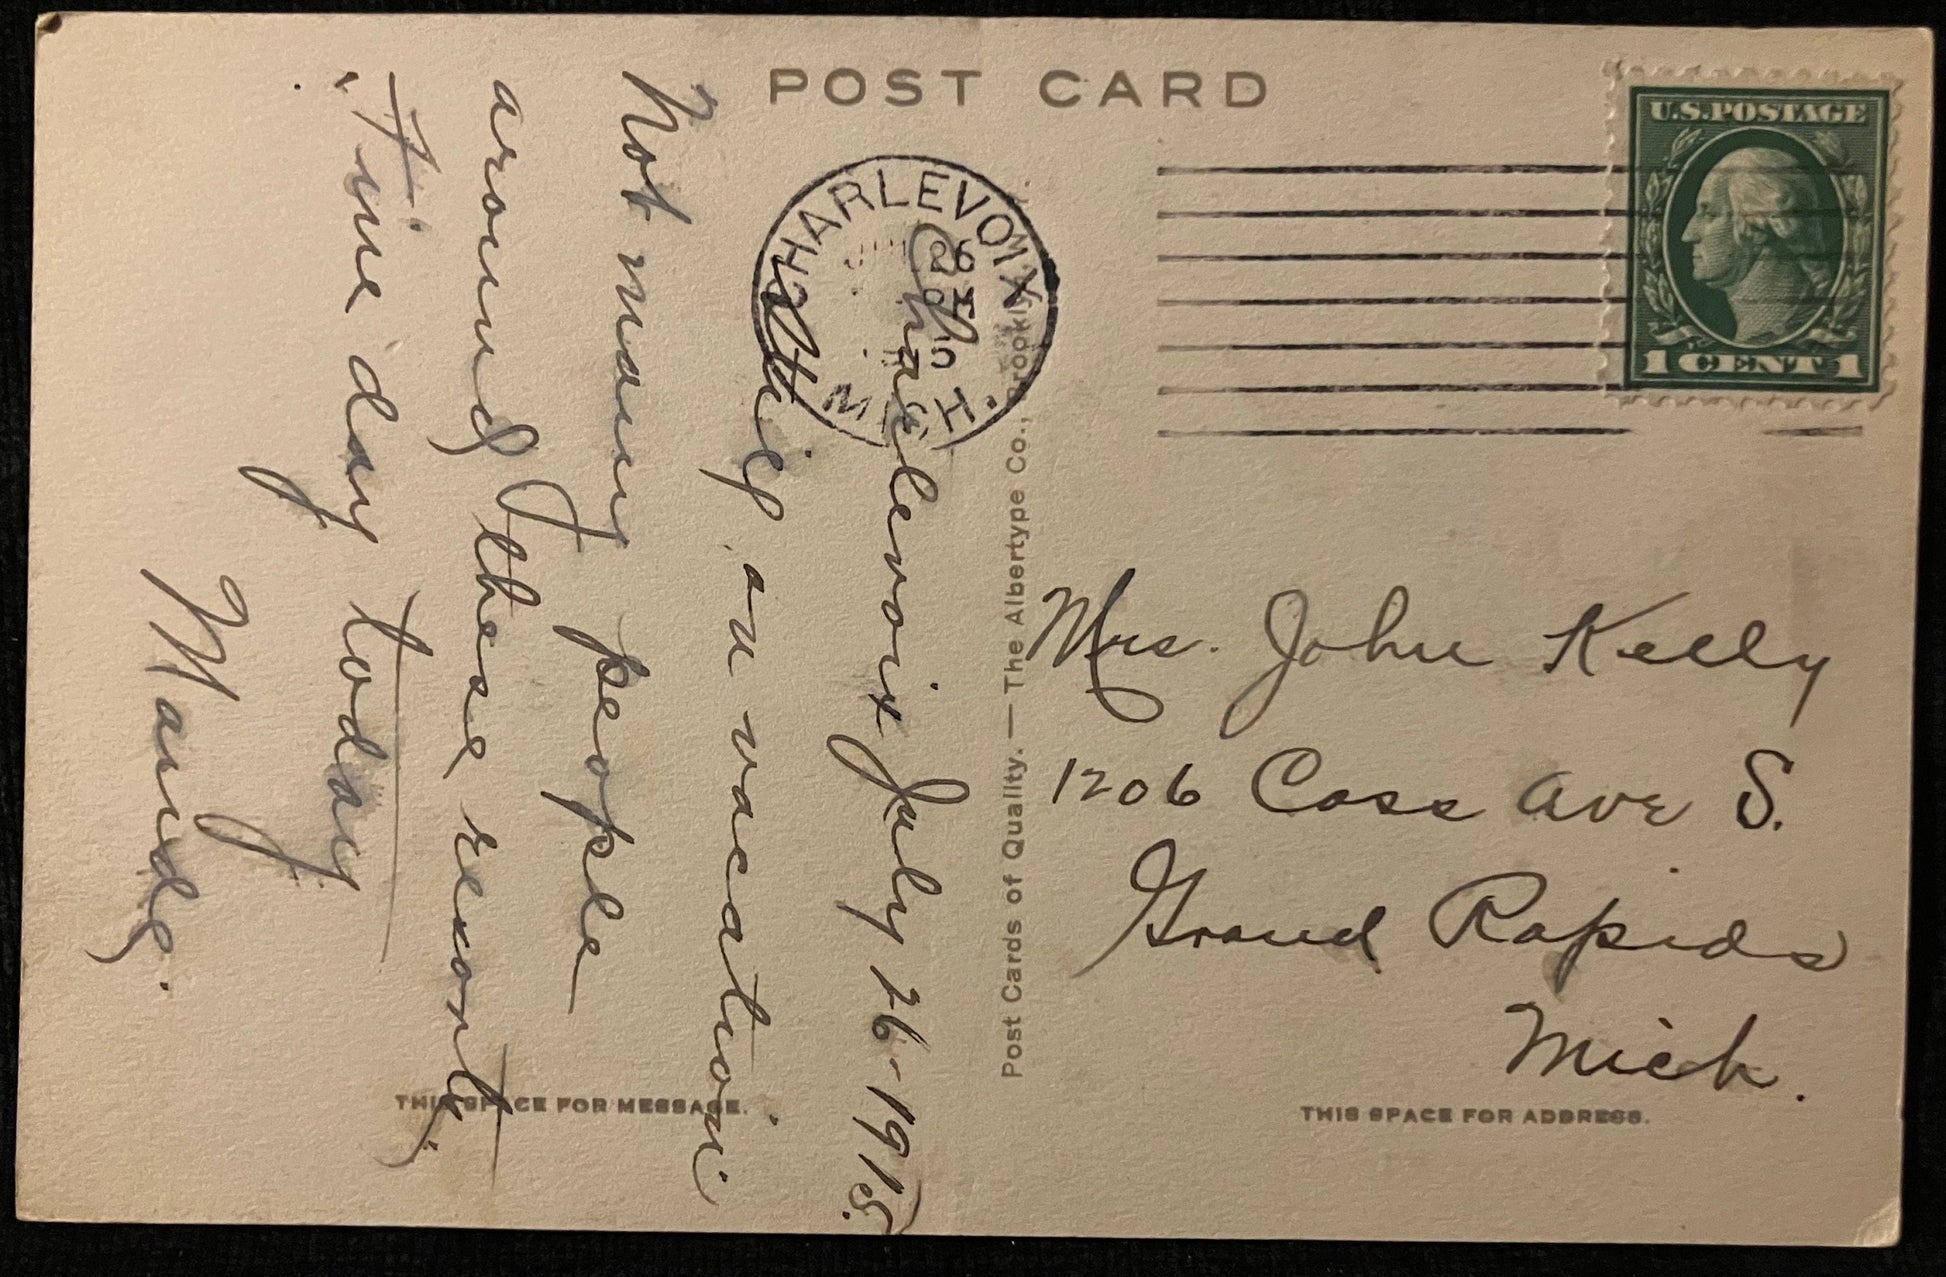 POST CARD
U.S. POSTAGE
1 CENT 1
CHARLEVOIX
26
MICH.
Charlevoix July 26-1915.
on vacation
Not many people
around these resorts.
Fine day today
Maude.
Post Cards of Quality. — The Albertype Co., Brooklyn
Mrs. John Kelly
1206 Cass Ave S.
Grand Rapids
Mich.
THIS SPACE FOR MESSAGE.
THIS SPACE FOR ADDRESS.